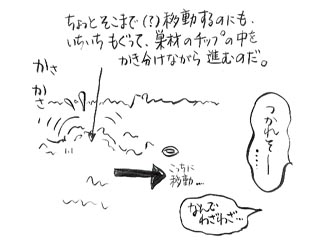 ちょっとそこまで(?)移動するのにも、
いちいちもぐって、巣材のチップの中を
かき分けながら進むのだ。
かさ
かさ
こっちに
移動…
つかれそー……
なんで
わざわざ…